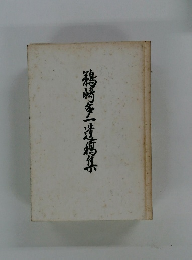 鶴崎多一遺稿集